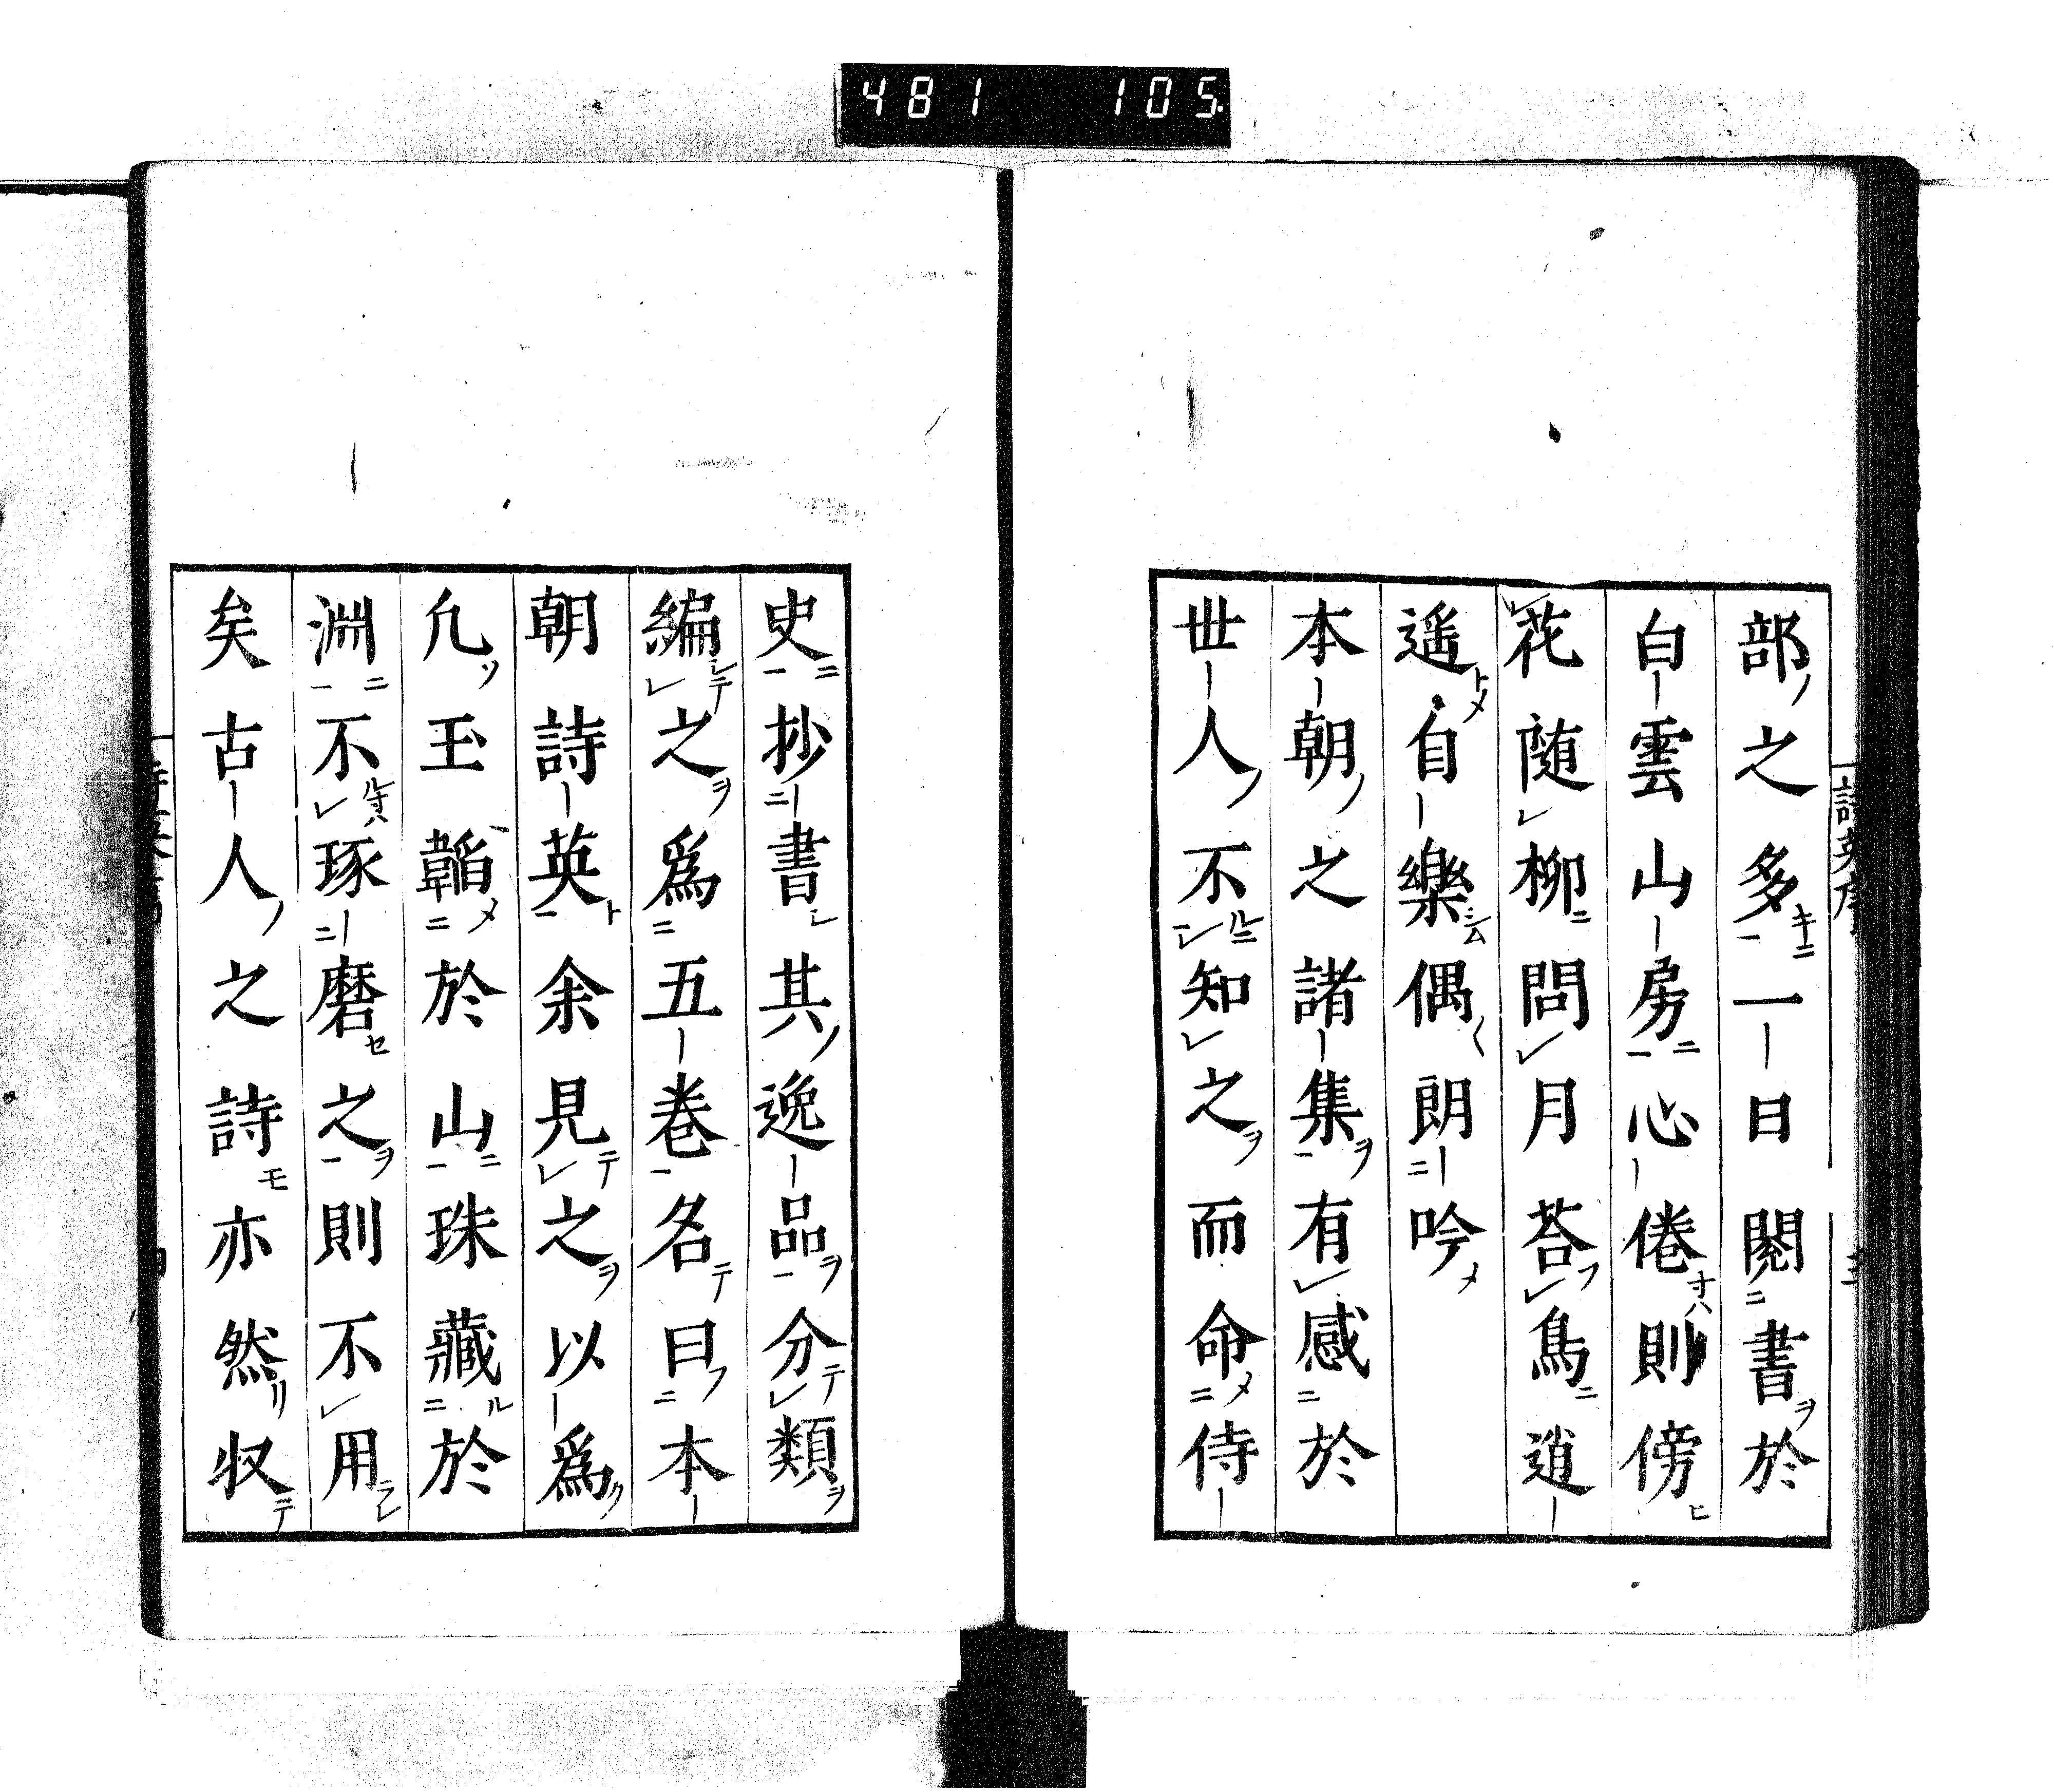 481 105.
部之多一日閱書於
白雲山房心倦則傍
花随柳問月荅鳥逍
遥自樂偶朗吟
本朝之諸集有感於
世人不知之而命侍
史抄書其逸品分類
編之爲五巻名曰本
朝詩英余見之以爲
凢玉韞於山珠藏於
淵不琢磨之則不用
矣古人之詩亦然収